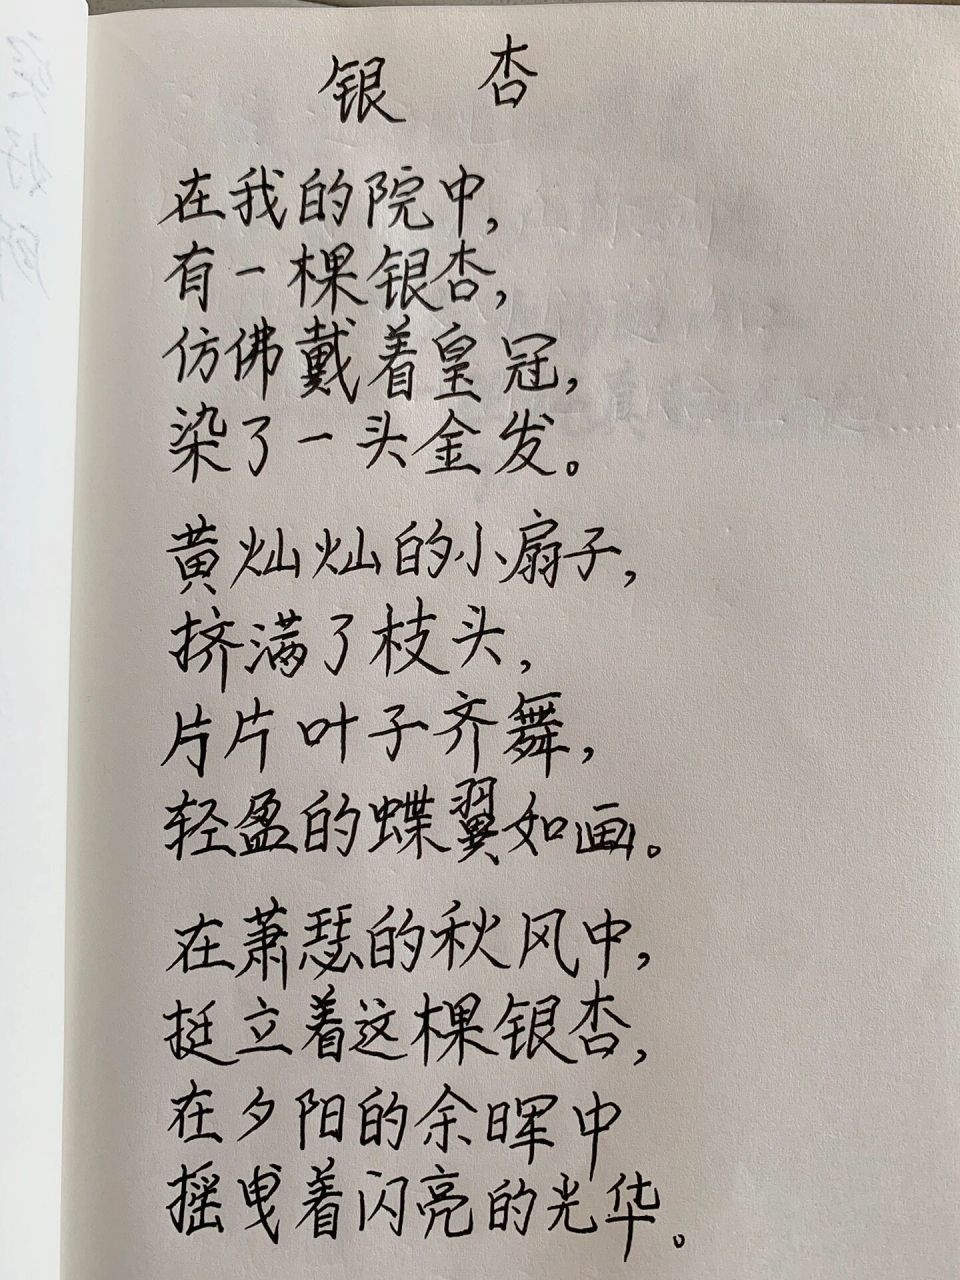 银 杏
在我的院中，
有一棵银杏，
仿佛戴着皇冠，
染了一头金发。
黄灿灿的小扇子，
挤满了枝头，
片片叶子齐舞，
轻盈的蝶翼如画。
在萧瑟的秋风中，
挺立着这棵银杏，
在夕阳的余晖中
摇曳着闪亮的光华。